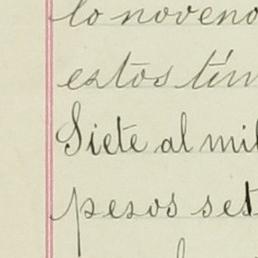 lo noveno
estos tím
Siete al mil
pesos set